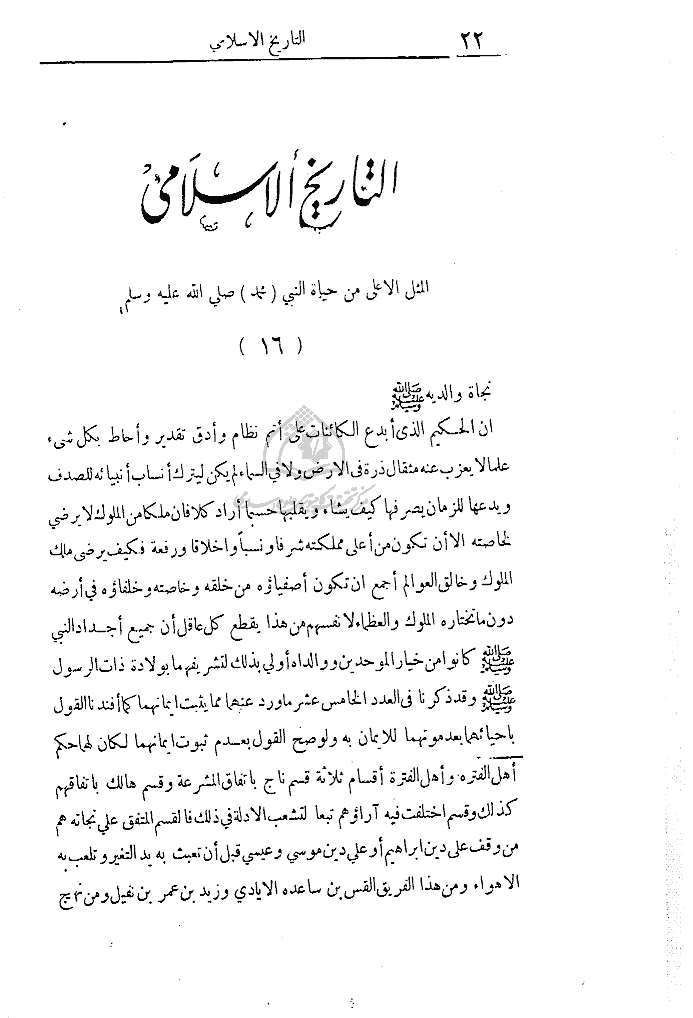 ٢٢
التاريخ الاسلامي
التاريخ ألاسلامى
المثل الاعلى من حياة النبي ( محمد ) صلي الله عليه وسلم
( ١٦ )
نجاة والديه ﷺ
ان الحكيم الذى أبدع الكائنات على أتم نظام وأدق تقدير وأحاط بكل شىء
علما لا يعزب عنه مثقال ذرة فى الارض ولا فى السماء لم يكن ليترك أنساب أنبيائه للصدف
ويدعها للزمان يصرفها كيف يشاء ويقلبها حسبما أراد كلا فان ملكا من الملوك لا يرضي
لخاصته الا أن تكون من أعلى مملكته شرفا ونسباً واخلاقا ورفعة فكيف يرضى ملك
الملوك وخالق العوالم أجمع ان تكون أصفياؤه من خلقه وخاصته وخلفاؤه في أرضه
دون ما تختاره الملوك والعظماء لانفسهم من هذا يقطع كل عاقل أن جميع أجداد النبي
ﷺ كانوا من خيار الموحدين ووالداه أولي بذلك لتشريفهما بولادة ذات الرسول
ﷺ وقد ذكرنا فى العدد الخامس عشر ما ورد عنهما مما يثبت ايمانهما كما أفدنا القول
باحيائهما بعد موتهما للايمان به ولو صح القول بعدم ثبوت ايمانهما لكان لهما حكم
أهل الفتره وأهل الفترة أقسام ثلاثة قسم ناج باتفاق المشرعة وقسم هالك باتفاقهم
كذلك وقسم اختلفت فيه آراؤهم تبعا لتشعب الادلة في ذلك فالقسم المتفق علي نجاته هم
من وقف على دين ابراهيم أو علي دين موسي وعيسي قبل أن تعبث به يد التغير وتلعب به
الاهواء ومن هذا الفريق القس بن ساعده الايادي وزيد بن عمر بن نفيل ومن نهج